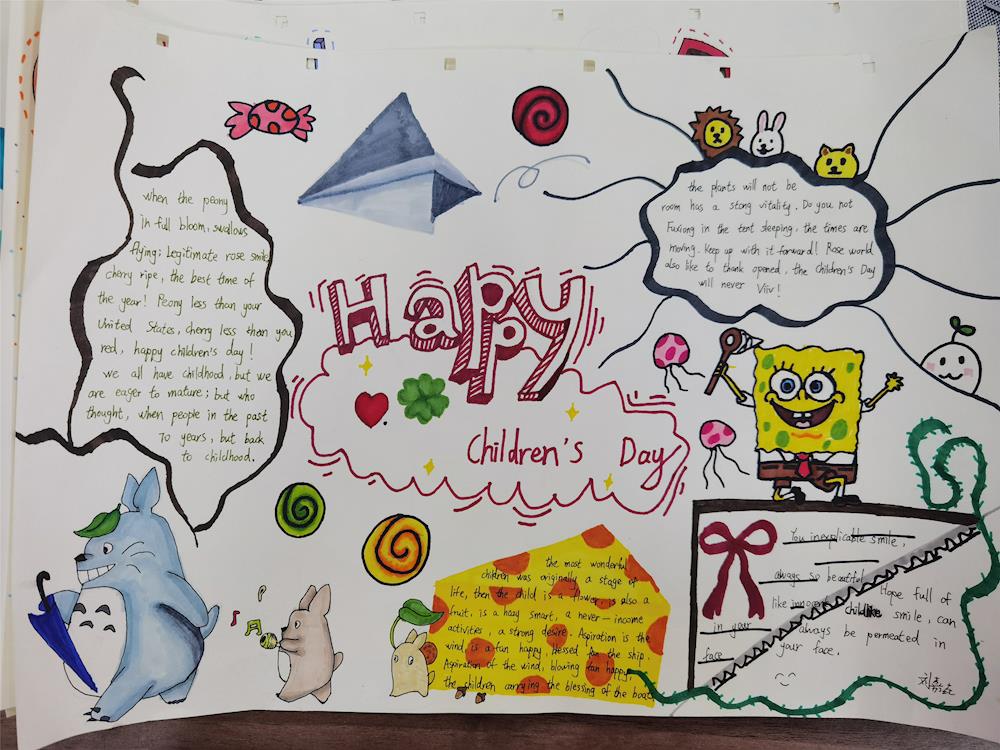 when the peony
in full bloom, swallows
flying; Legitimate rose smile
cherry ripe, the best time of
the year! Peony less than your
United States, cherry less than you
red, happy children's day!
we all have childhood, but we
are eager to mature; but who
thought, when people in the past
70 years, but back
to childhood.
the plants will not be
room has a stong vitality. Do you not
Fuxiong in the tent sleeping, the times are
moving. Keep up with it forward! Rose world
also like to thank opened, the Children's Day
will never Viiv!
Happy
Children's Day
the most wonderful
children was originally a stage of
life, then the child is a flower, is also a
fruit, is a hazy smart, a never-income
activities, a strong desire. Aspiration is the
wind, is a fun happy, blessed for the ship.
Aspiration of the wind, blowing fan happy,
the children carrying the blessing of the boat
You inexplicable smile,
always so beautiful
like innocent
in your
face
Hope full of
childlike smile, can
always be permeated in
your face.